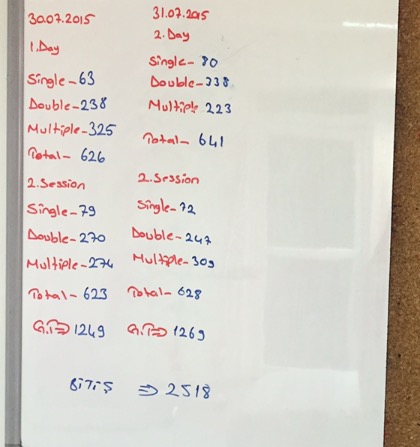 30.07.2015
1.Day
Single-63
Double-238
Multiple-325
Total-626
2.Session
Single-79
Double-270
Multiple-274
Total-623
G.T⇒1249
31.07.2015
2.Day
Single-80
Double-338
Multiple 223
Total-641
2.Session
Single-72
Double-247
Multiple-309
Total-628
G.T⇒1269
BiTiŞ ⇒2518